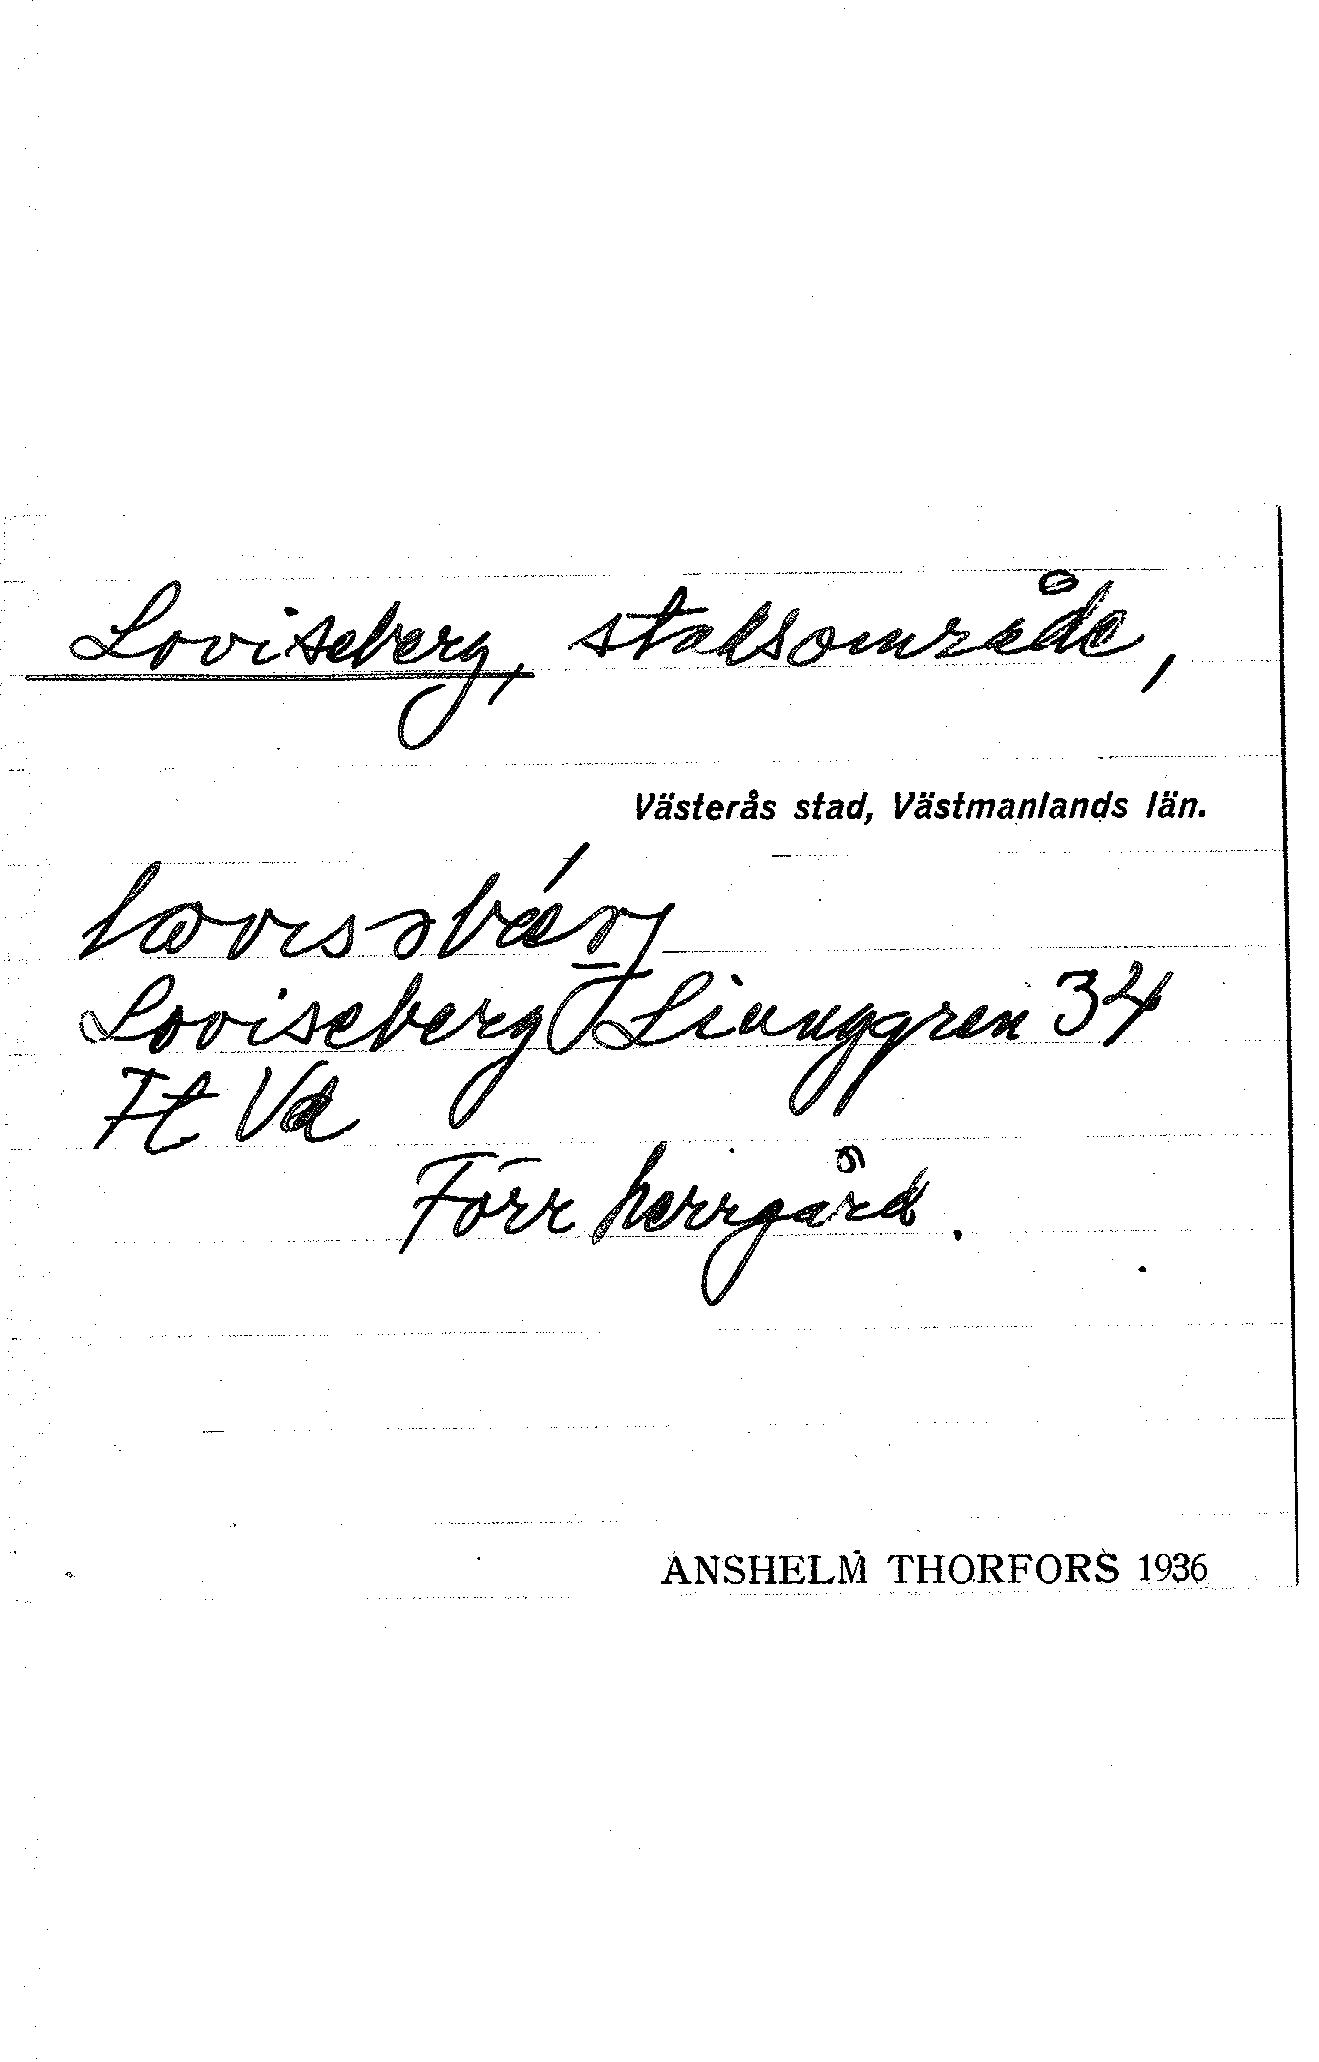 Loviseberg, stadsområde,
Västerås stad, Västmanlands län.
Loviseberg Liunggren 34
Ft Vd
Förr herrgård.
ANSHELM THORFORS 1936